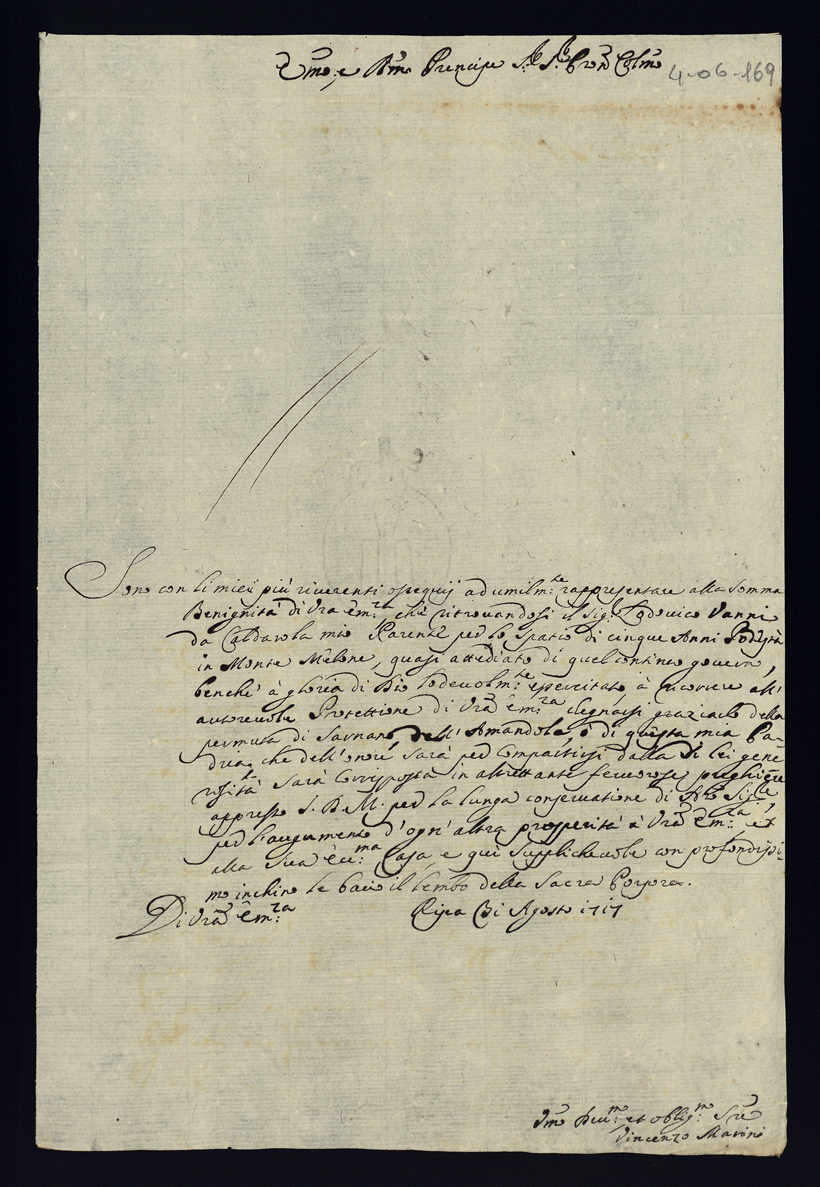 Em̃o, e Rm̃o Prencipe Sig.re Sig.re Pron̄ Col̃mo
4-06-169
Sono con li miei più riverenti ossequij ad umilm:te rappresentare alla somma
Benignità di Vr̃a Em:za che ritrovandosi il Sig:r Lodovico Vanni
da Caldarola mio Parente per lo spatio di cinque Anni Podestà
in Monte Melone, quasi attediato di quel continuo governo,
benche à gloria di Dio lodevolm:te essercitato à ricorrere all'
autorevole Protettione di Vr̃a Em:za degnarsi graziarlo della
permuta di Sarnano dell'Amandola, ò di questa mia Pa-
dria, che dell'onore sarà per compartirsi dalla di lei gene
rosità sarà corrisposta in altrettante fervorose preghiere
appresso S. D. M. per la lunga conservatione di
per l'augumento d'ogn'altra prosperità à Vr̃a Em:za, et
alla Sua Ecc:ma Casa, e qui supplichevole con profondissi-
mo inchino le bacio il lembo della Sacra Porpora.
Di Vr̃a Em:za Ripa Agosto 1717
Um̃o Dev:mo et oblig:mo Sre
Vincenzo Marini